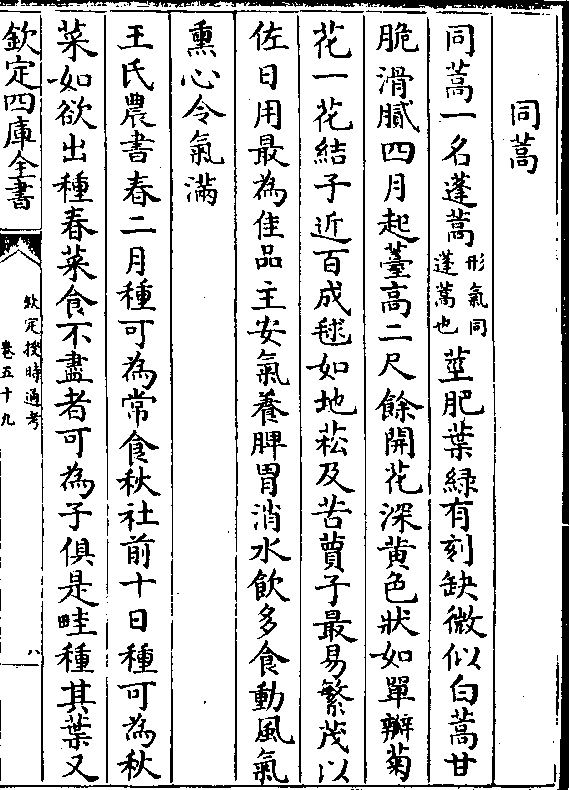 同蒿
同蒿一名蓬蒿形氣同蓬蒿也莖肥葉緑有刻缺微似白蒿甘
脆滑膩四月起薹高二尺餘開花深黄色狀如單瓣菊
花一花結子近百成毬如地菘及苦蕒子最易繁茂以
佐日用最為佳品主安氣養脾胃消水飲多食動風氣
熏心令氣滿
王氏農書春二月種可為常食秋社前十日種可為秋
菜如欲出種春菜食不盡者可為子俱是畦種其葉又
欽定四庫全書
欽定授時通考
卷五十九
八